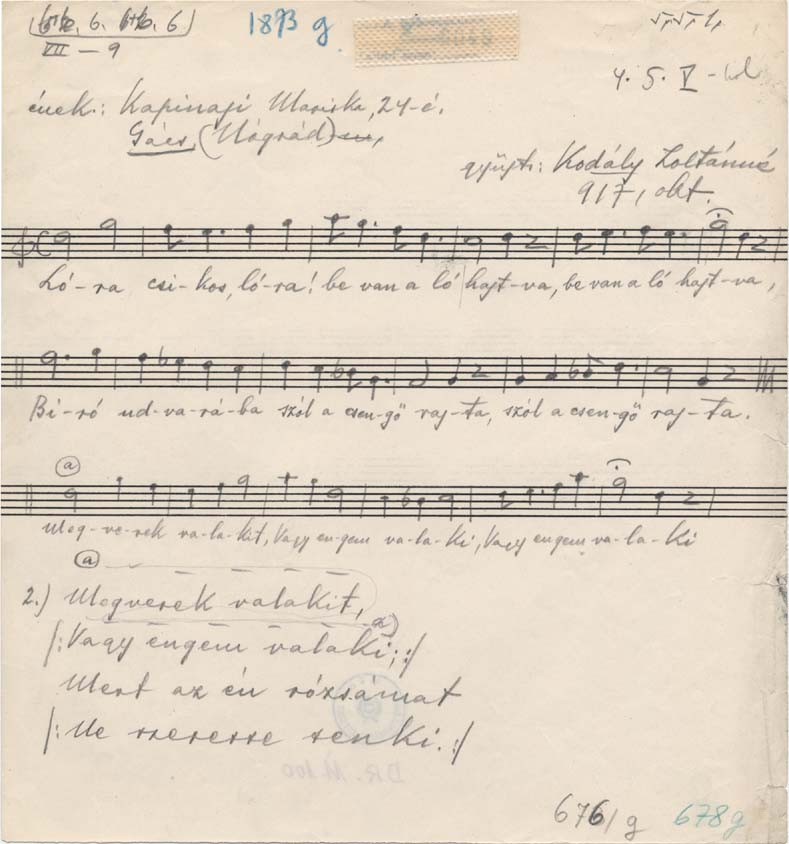 6. 6
1873 g.
VII – 9
4. 5. V
ének.: Kapinaji Mariska, 24-é.
Gács, (Nógrád)
gyüjt: Kodály Zoltánné
917, okt.
Ló-ra csi-kos, ló-ra! be van a ló hajt-va, be van a ló hajt-va,
Bi-ró ud-va-rá-ba szól a csen-gő raj-ta, szól a csen-gő raj-ta.
a
Meg-ve-rek va-la-kit, Vagy en-gem va-la-ki, Vagy engem va-la-ki
a
2.) Megverek valakit,
/: Vagy engem valaki; :/
Mert az én rózsámat
/: Ne szeresse senki. :/
DR. M.100
676/g 678 g